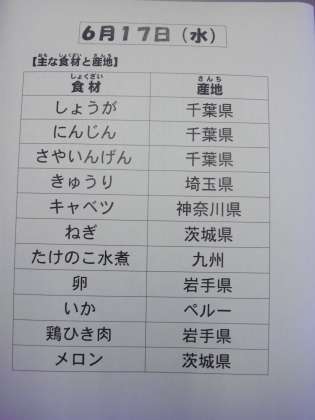 6月17日（水）
【主な食材と産地】
食材 産地
しょうが 千葉県
にんじん 千葉県
さやいんげん 千葉県
きゅうり 埼玉県
キャベツ 神奈川県
ねぎ 茨城県
たけのこ水煮 九州
卵 岩手県
いか ペルー
鶏ひき肉 岩手県
メロン 茨城県